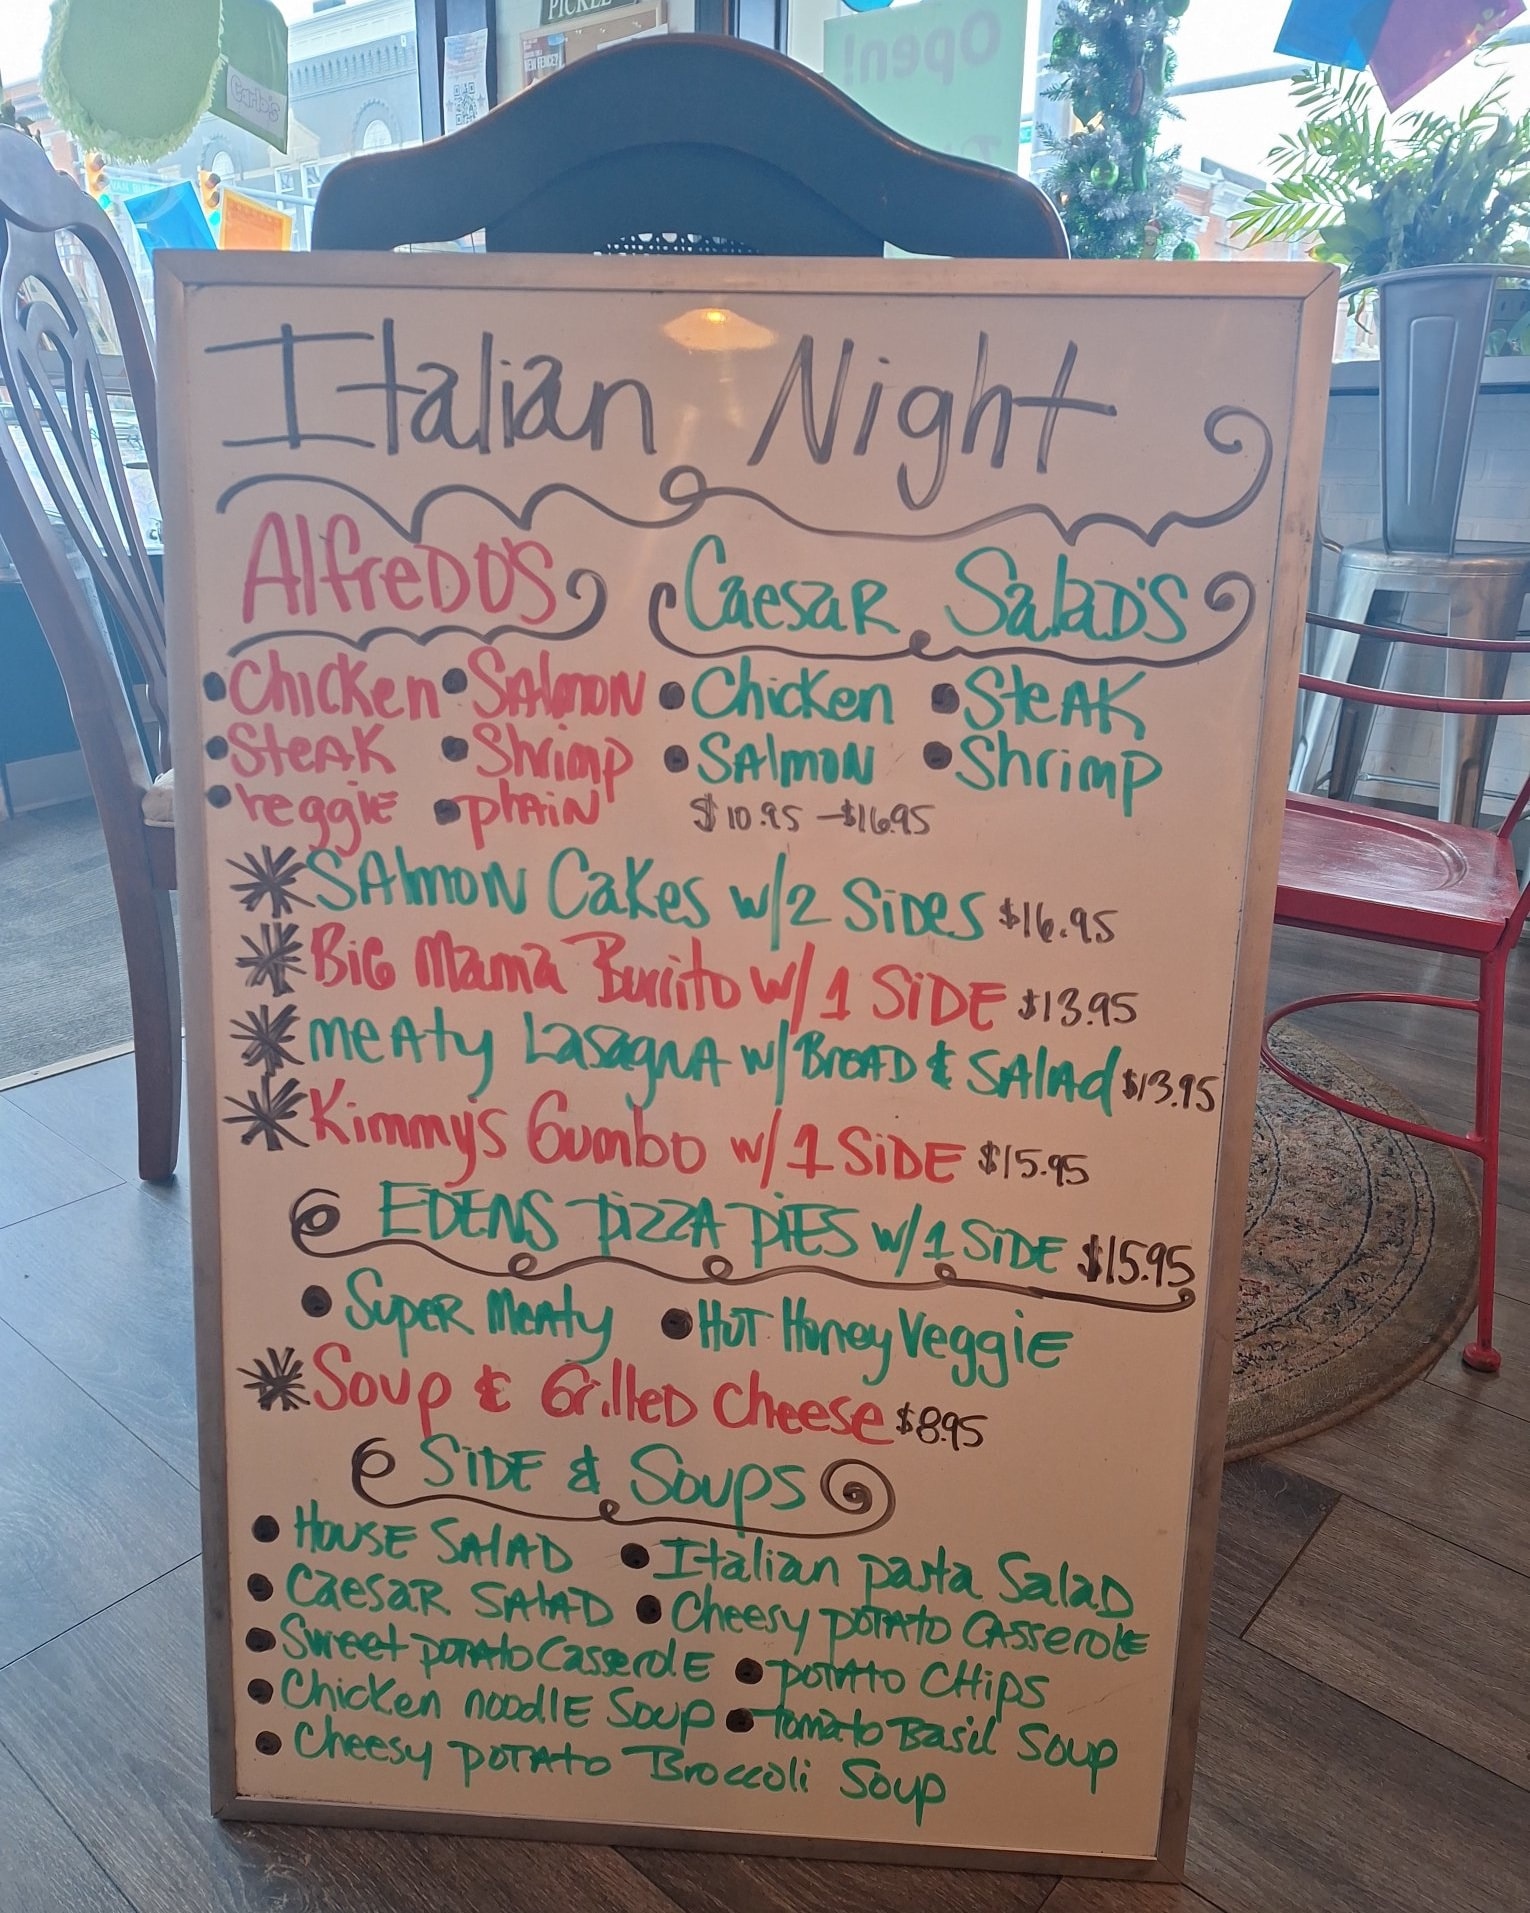 PICKLE
Carlo's
Open!
Italian Night
AlfreDO'S
Caesar SalaD's
• Chicken • Salmon
• Steak • Shrimp
• Veggie • plain
• Chicken • Steak
• Salmon • Shrimp
$10.95 - $16.95
Salmon Cakes w/2 Sides $16.95
Big Mama Burrito w/1 Side $13.95
Meaty Lasagna w/Bread & Salad $13.95
Kimmy's Gumbo w/1 Side $15.95
EDENS Pizza Pies w/1 Side $15.95
• Super Meaty • Hot Honey Veggie
Soup & Grilled Cheese $8.95
Side & Soups
• House Salad • Italian pasta Salad
• Caesar Salad • Cheesy potato Casserole
• Sweet potato Casserole • potato Chips
• Chicken noodle Soup • Tomato Basil Soup
• Cheesy potato Broccoli Soup